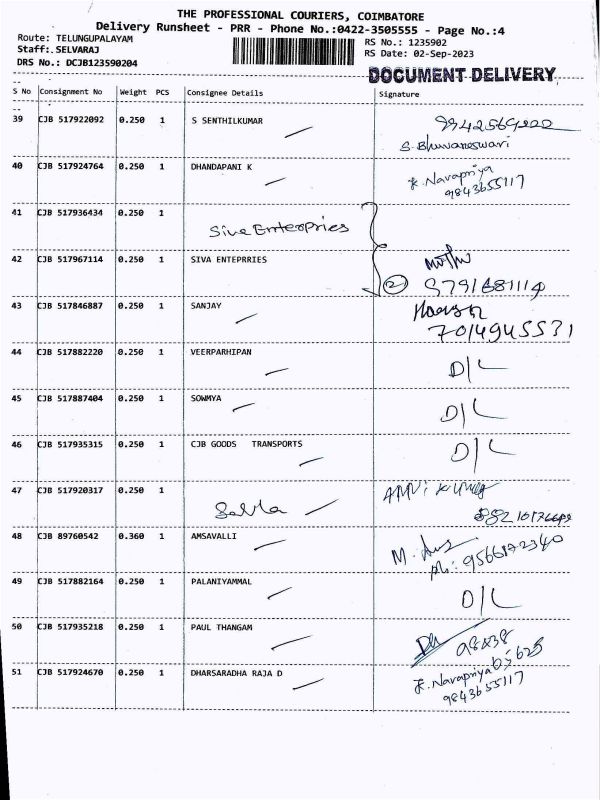 THE PROFESSIONAL COURIERS, COIMBATORE
Delivery Runsheet - PRR - Phone No.:0422-3505555 - Page No.:4
Route: TELUNGUPALAYAM RS No.: 1235902
Staff: SELVARAJ RS Date: 02-Sep-2023
DRS No.: DCJB123590204
DOCUMENT DELIVERY
S No Consignment No Weight PCS Consignee Details Signature
39 CJB 517922092 0.250 1 S SENTHILKUMAR
S. Bhuvaneswari
40 CJB 517924764 0.250 1 DHANDAPANI K K. Navapriya
9843655117
41 CJB 517936434 0.250 1
Siva Enterpries
42 CJB 517967114 0.250 1 SIVA ENTEPRRIES
2
43 CJB 517846887 0.250 1 SANJAY
7014945531
44 CJB 517882220 0.250 1 VEERPARHIPAN D/L
45 CJB 517887404 0.250 1 SOWMYA D/L
46 CJB 517935315 0.250 1 CJB GOODS TRANSPORTS D/L
47 CJB 517920317 0.250 1
48 CJB 89760542 0.360 1 AMSAVALLI
Ph: 9566172340
49 CJB 517882164 0.250 1 PALANIYAMMAL D/L
50 CJB 517935218 0.250 1 PAUL THANGAM
51 CJB 517924670 0.250 1 DHARSARADHA RAJA D K. Navapriya
9843655117